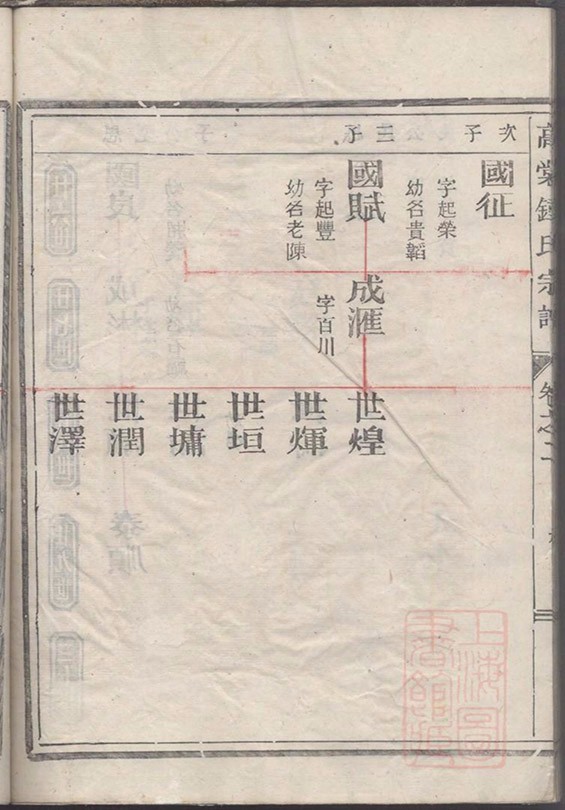 高棠鍾氏宗譜
卷之二
次子
國征
字起榮
幼名貴韜
三子
國賦
字起豐
幼名老陳
成滙
字百川
世煌
世煇
世垣
世墉
世潤
世澤
上海圖
書館藏